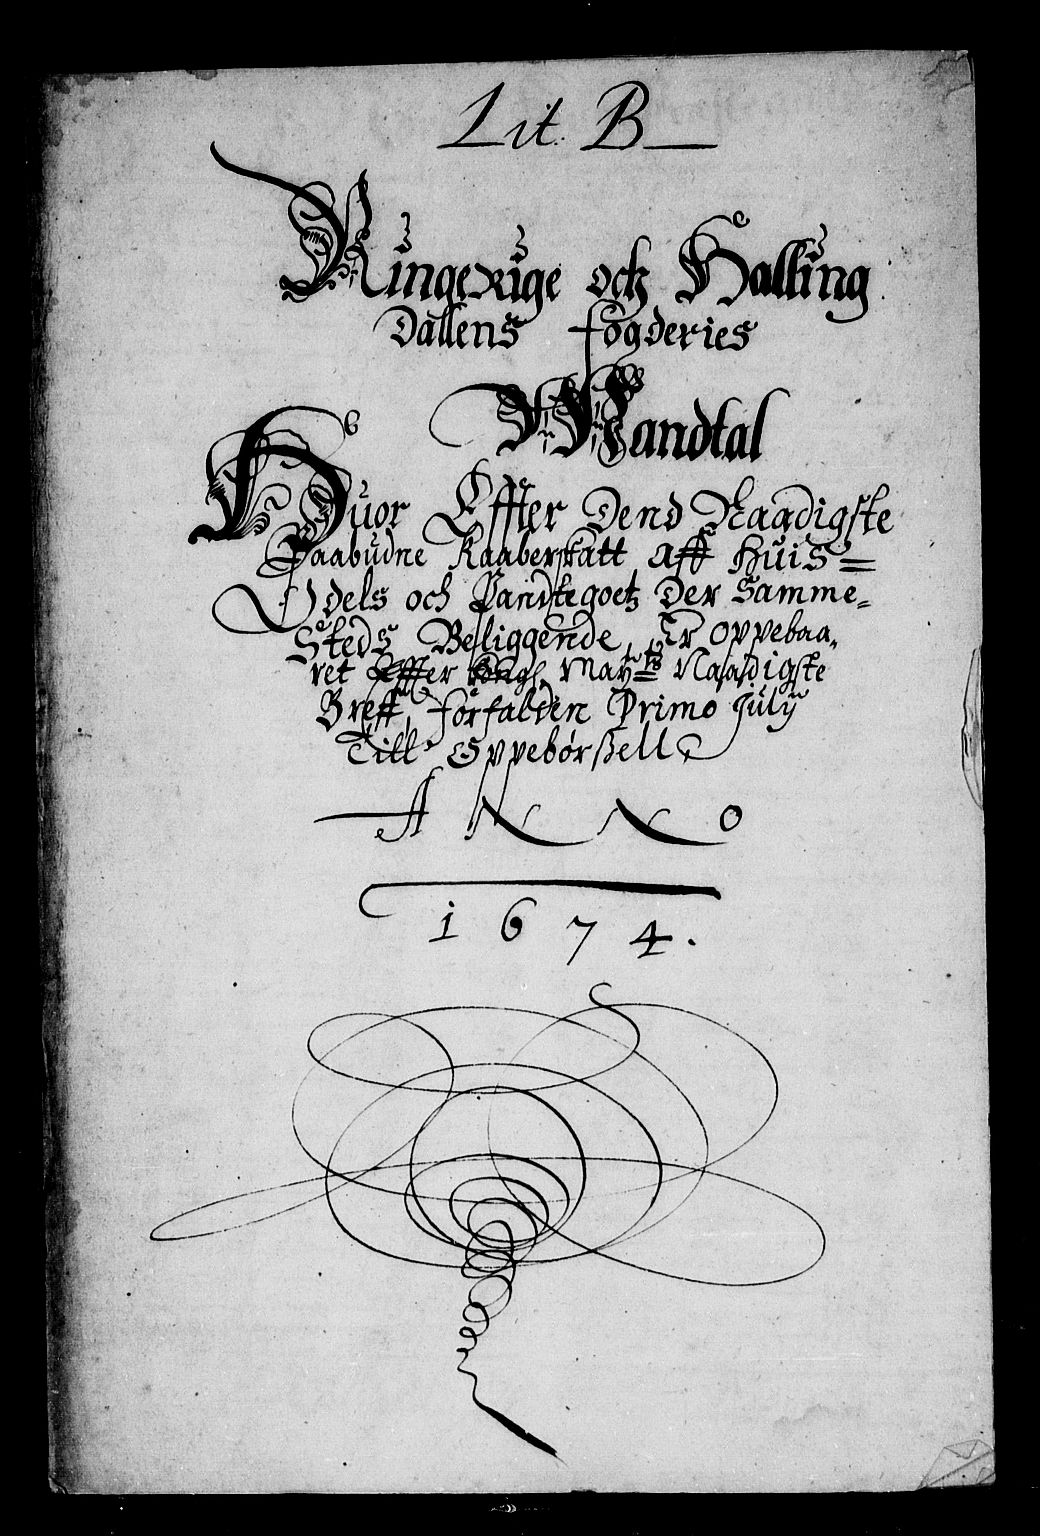 Lit. B
Ringerige och Halling
Dallens fogderies
Mandtal
Huor Effter Dend Naadigste
Paabudne Kaaberskatt aff Huis=
Odels och Pandtegoetz der Samme=
Steds Beliggende, Er Oppebaa=
ret Effter Kongl. Mayts Naadigste
Breff, forfalden Primo July
Till Oppebørsell
ANNO
1674.